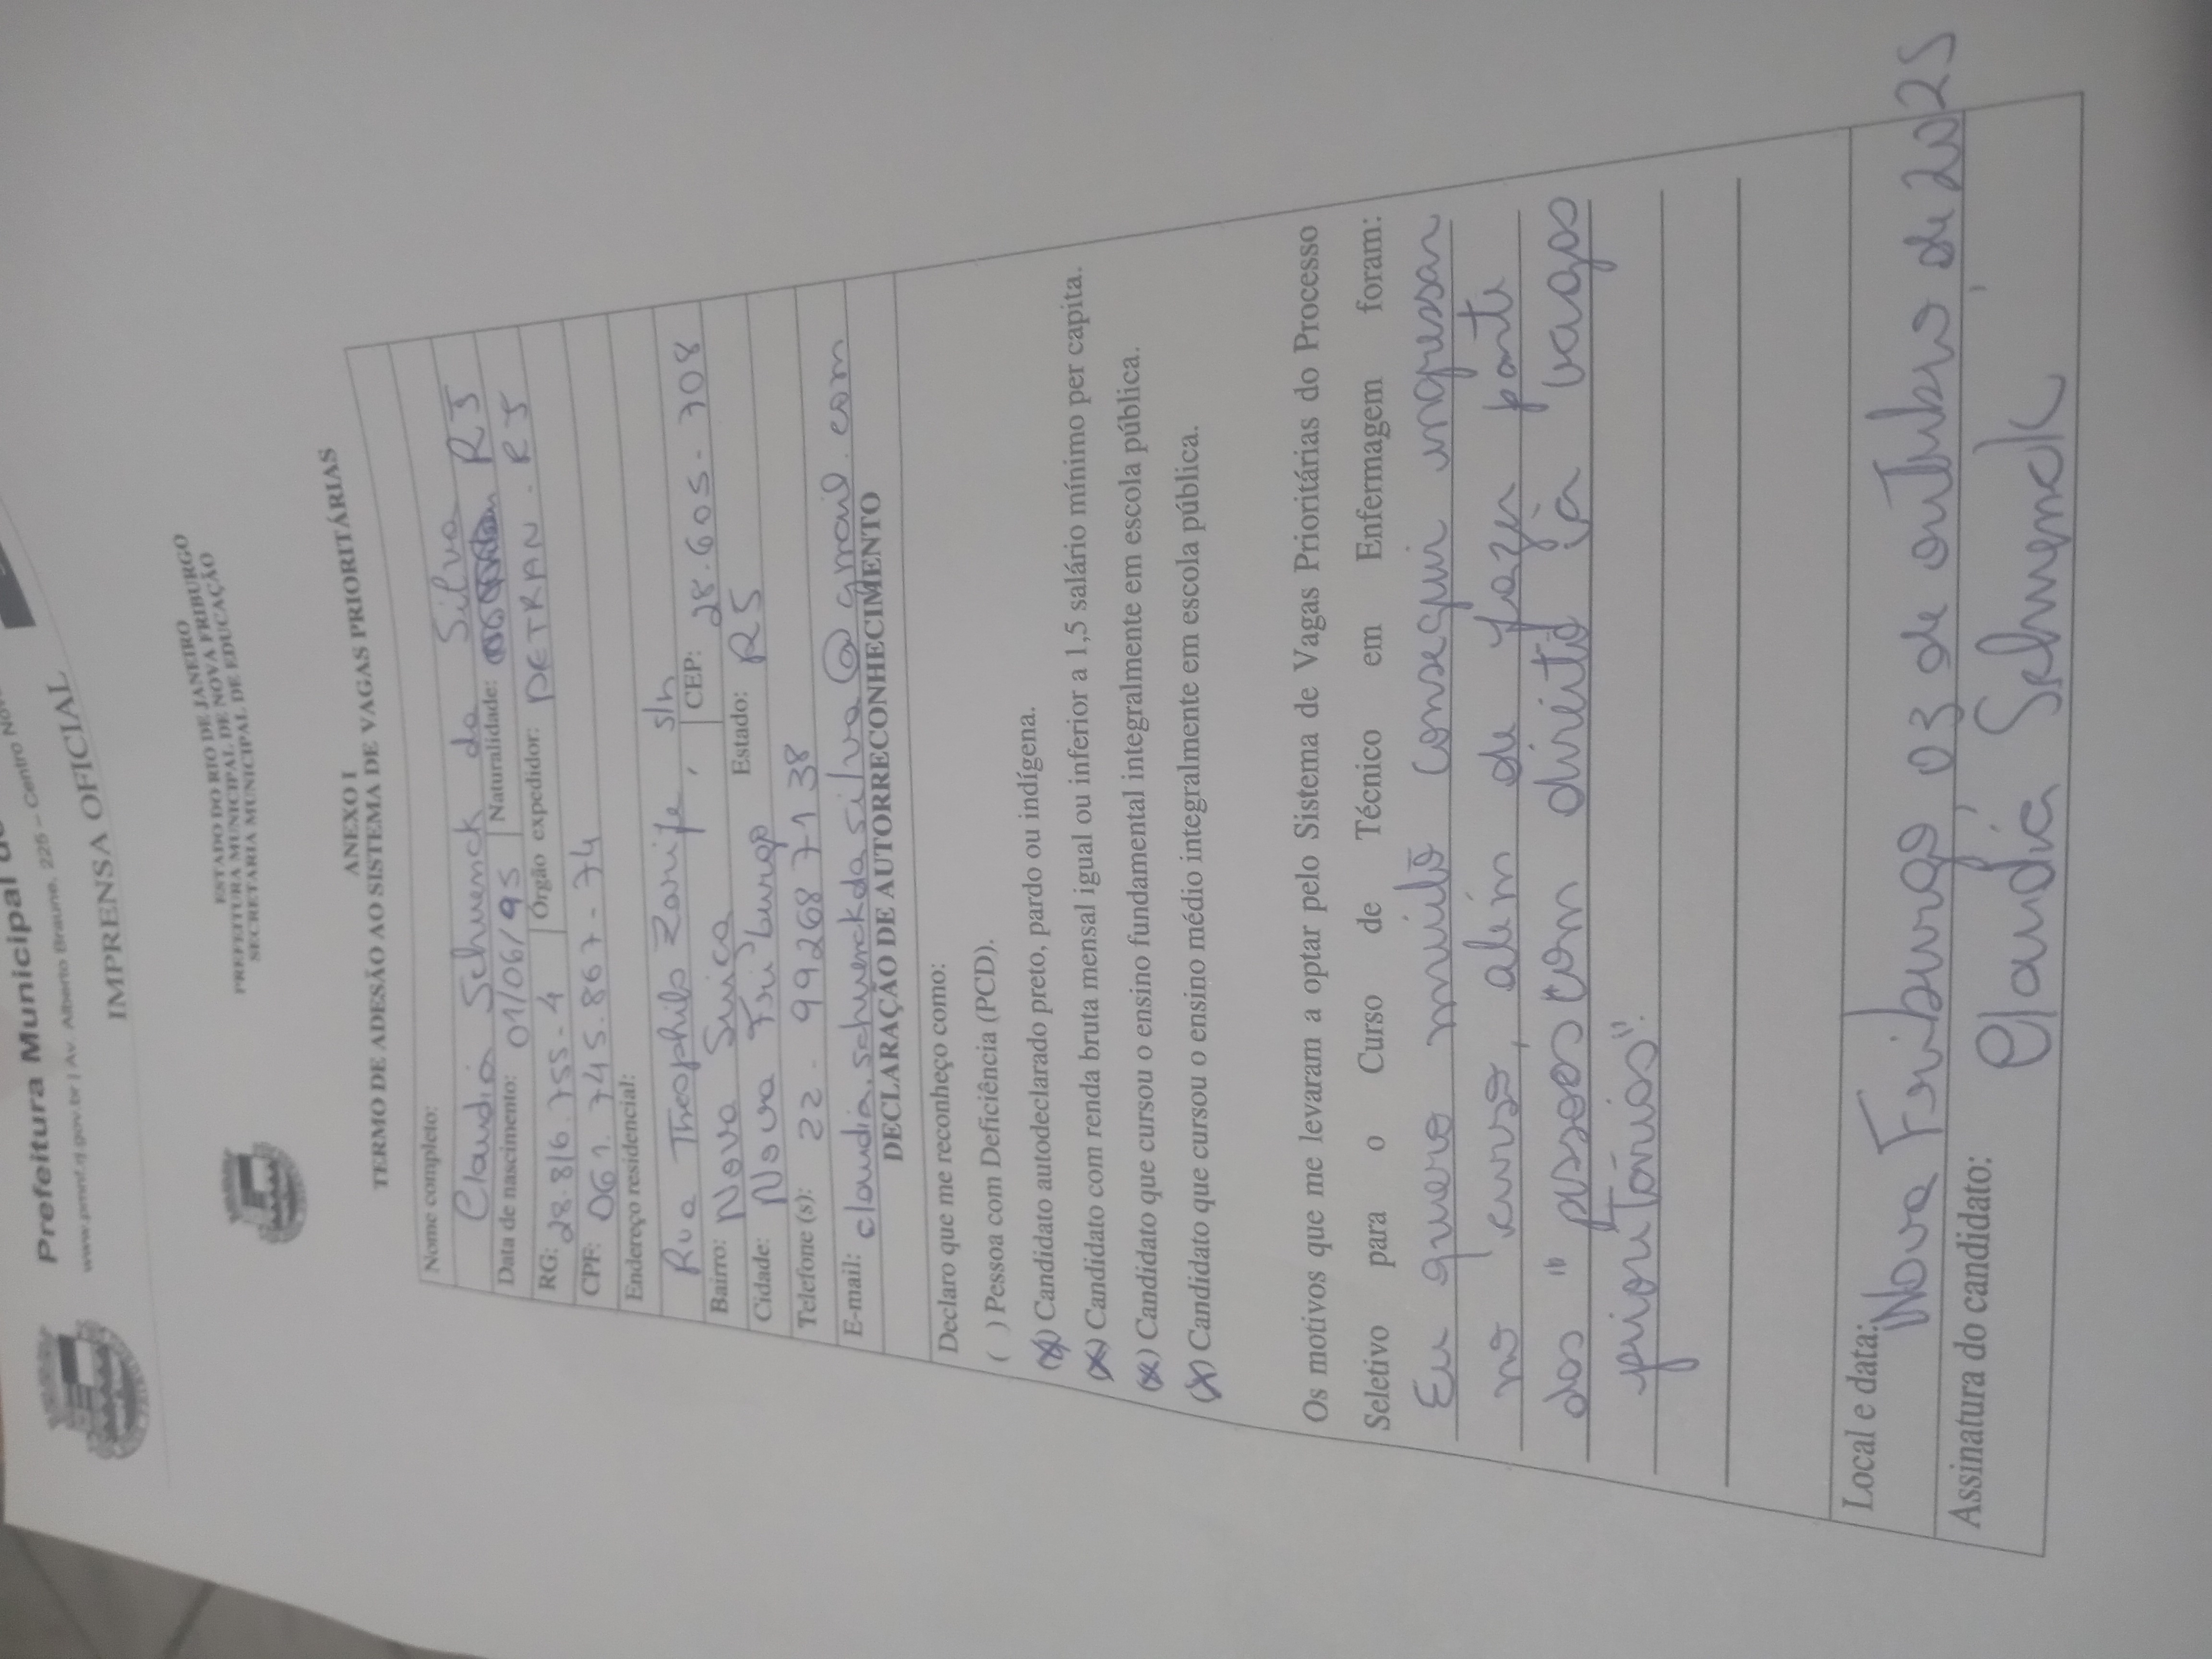 Prefeitura Municipal
www.pmnf.rj.gov.br | Av. Alberto Braune, 225 – Centro
IMPRENSA OFICIAL
ESTADO DO RIO DE JANEIRO
PREFEITURA MUNICIPAL DE NOVA FRIBURGO
SECRETARIA MUNICIPAL DE EDUCAÇÃO
ANEXO I
TERMO DE ADESÃO AO SISTEMA DE VAGAS PRIORITÁRIAS
Nome completo:
Claudia Schuenck da Silva
Data de nascimento: 01/06/95 Naturalidade: RJ
RG: 28.816.755-4 Órgão expedidor: DETRAN - RJ
CPF: 061.745.867-74
Endereço residencial:
Rua Theophilo Zarife, s/n
Bairro: Nova Suiça CEP: 28.605-708
Cidade: Nova Friburgo Estado: RJ
Telefone (s): 22 - 992687138
E-mail: claudia.schuenckdasilva@gmail.com
DECLARAÇÃO DE AUTORRECONHECIMENTO
Declaro que me reconheço como:
( ) Pessoa com Deficiência (PCD).
(X) Candidato autodeclarado preto, pardo ou indígena.
(X) Candidato com renda bruta mensal igual ou inferior a 1,5 salário mínimo per capita.
(X) Candidato que cursou o ensino fundamental integralmente em escola pública.
(X) Candidato que cursou o ensino médio integralmente em escola pública.
Os motivos que me levaram a optar pelo Sistema de Vagas Prioritárias do Processo
Seletivo para o Curso de Técnico em Enfermagem foram:
Eu quero muito conseguir ingressar
no curso, além de fazer parte
das "pessoas com direito à vagas
prioritárias".
Local e data: Nova Friburgo, 03 de outubro de 2025
Assinatura do candidato: Claudia Schuenck